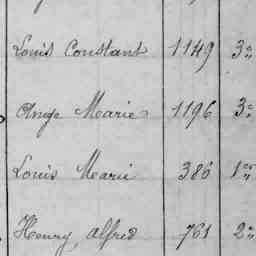 Louis Constant 1149 3e
Ange Marie 1196 3e
Louis Marie 386 1er
Henry, Alfred 761 2e